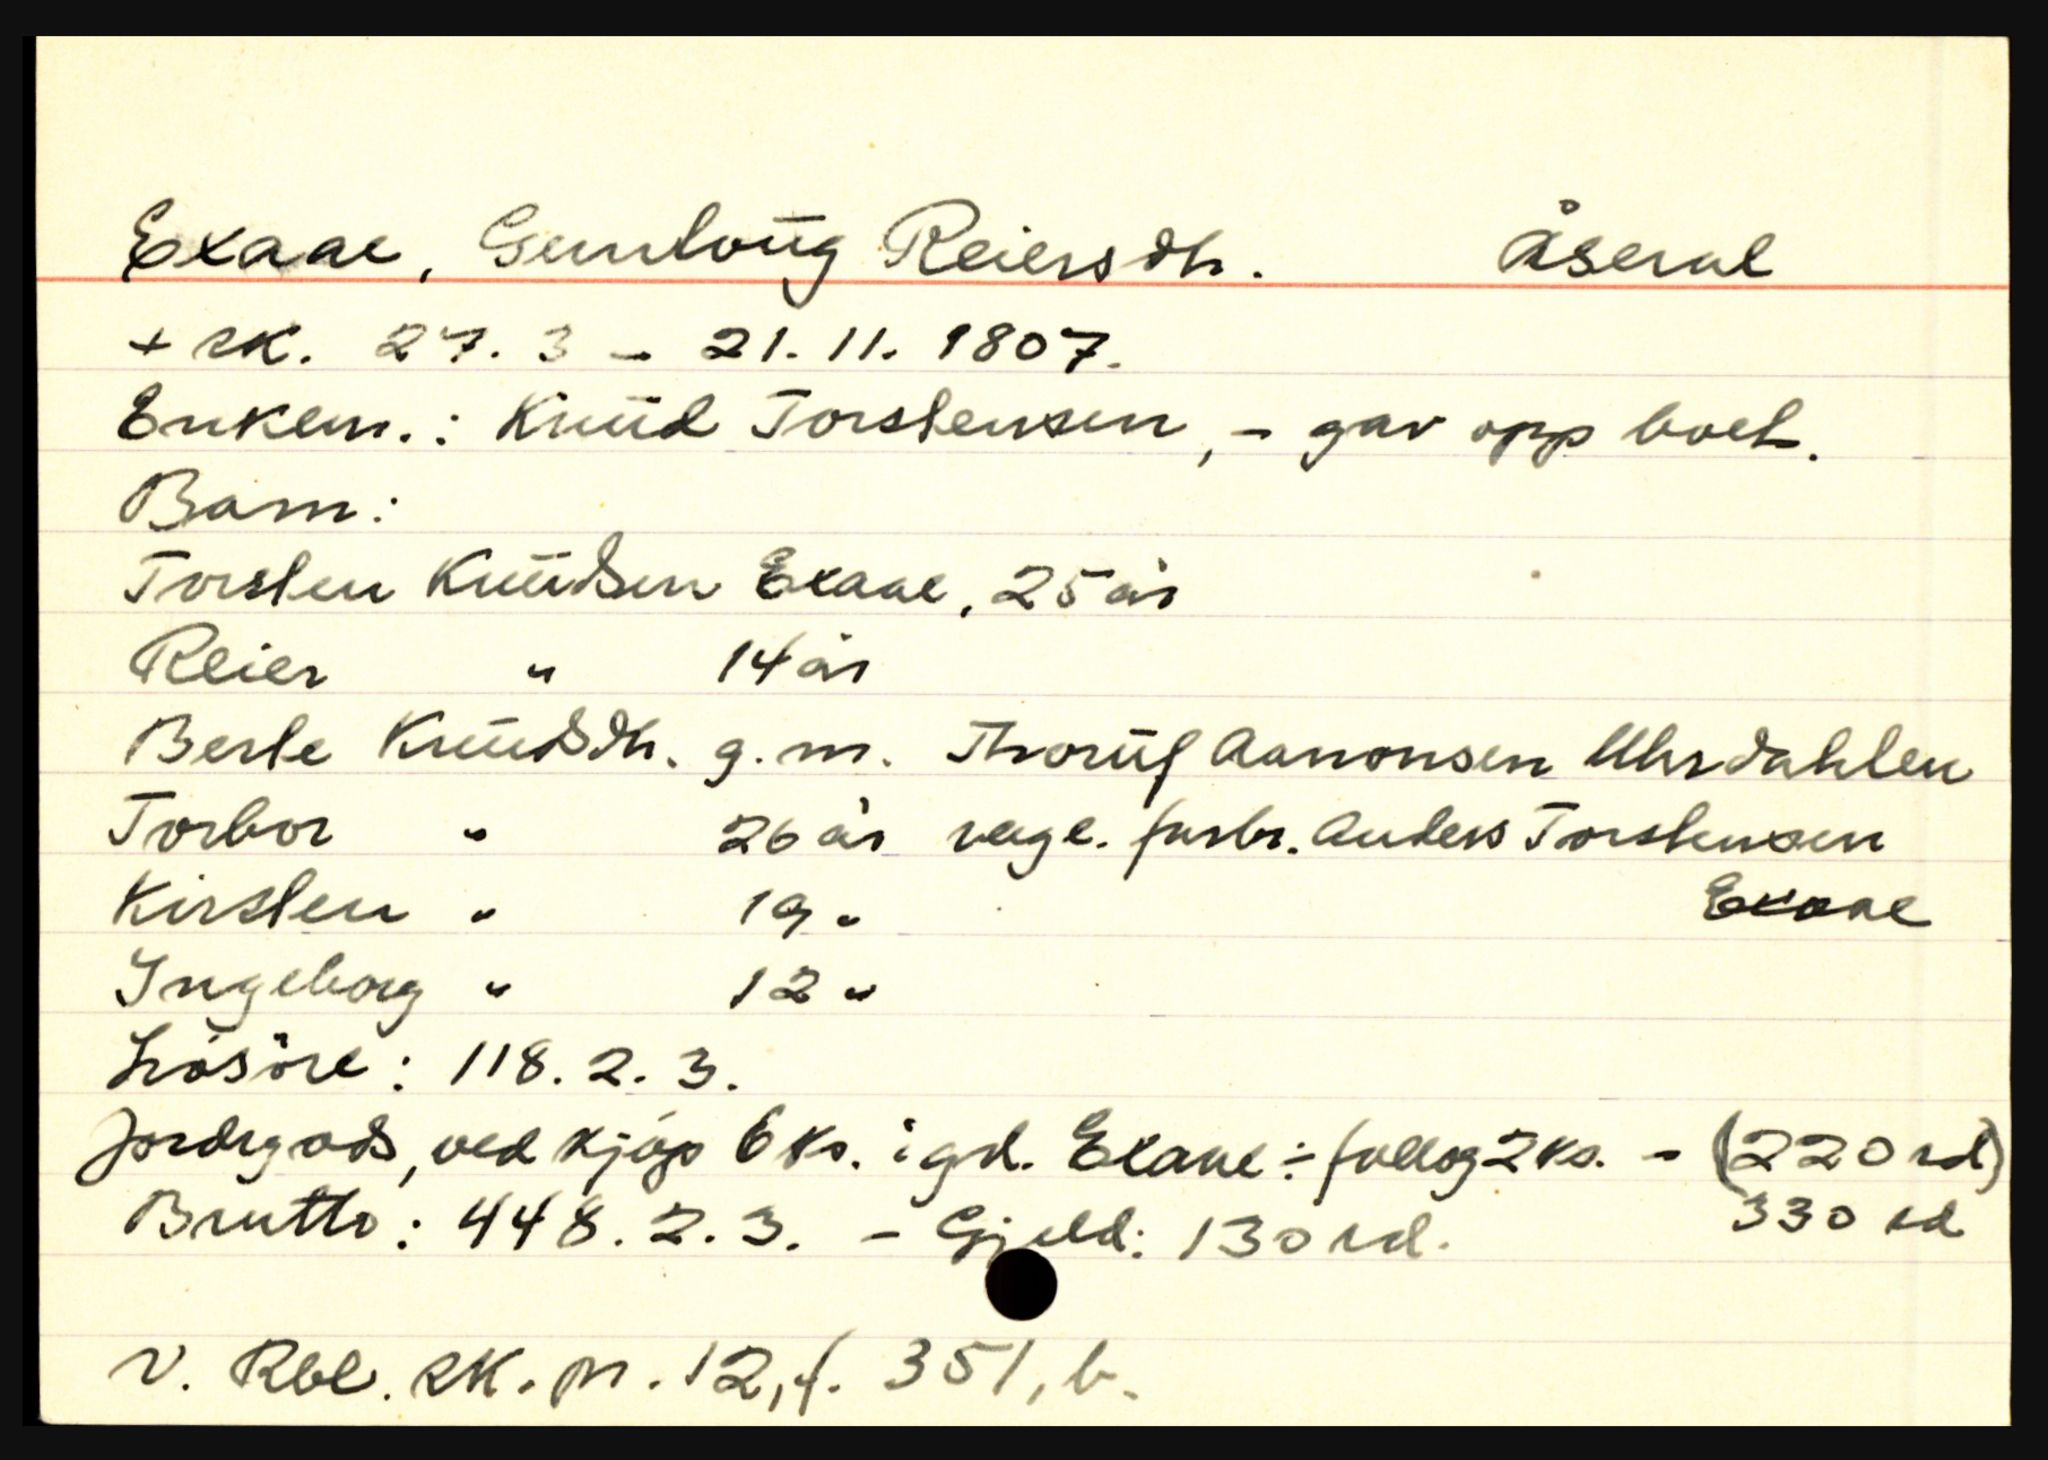 Exaae, Gunloug Reiersdh. Åseral
+ sk. 27. 3 - 21. 11. 1807.
Enkem.: Knud Torstensen, - gav opp boet.
Barn:
Torsten Knudsen Exaae, 25 år
Reier " 14 år
Berte Knudsdh. g. m. Thoruf Aanonsen Uhrdahlen
Torbor " 26 år verge. farbr. Anders Torstensen
Kirsten " 19 " Exaae
Ingeborg " 12 "
Lösöre: 118. 2. 3.
Jordegods, ved kjöp 6 ks. i gd. Exaae ÷ follog 2 ks. - (220 rd)
Brutto: 448. 2. 3. - Gjeld: 130 rd. 330 rd
V. Rbl. sk. pr. 12, f. 351, b.